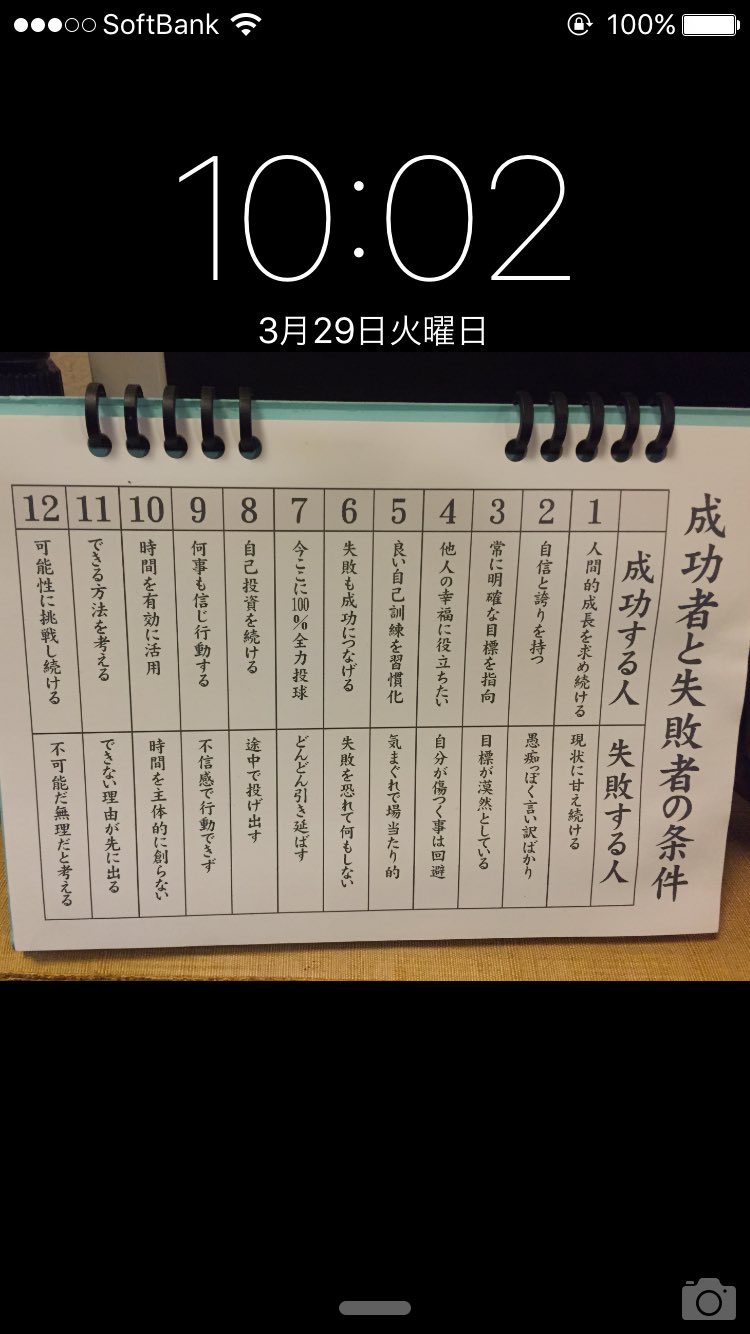 SoftBank 100%
10:02
3月29日火曜日
成功者と失敗者の条件
成功する人
失敗する人
1
人間的成長を求め続ける
現状に甘え続ける
2
自信と誇りを持つ
愚痴っぽく言い訳ばかり
3
常に明確な目標を指向
目標が漠然としている
4
他人の幸福に役立ちたい
自分が傷つく事は回避
5
良い自己訓練を習慣化
気まぐれで場当たり的
6
失敗も成功につなげる
失敗を恐れて何もしない
7
今ここに100%全力投球
どんどん引き延ばす
8
自己投資を続ける
途中で投げ出す
9
何事も信じ行動する
不信感で行動できず
10
時間を有効に活用
時間を主体的に創らない
11
できる方法を考える
できない理由が先に出る
12
可能性に挑戦し続ける
不可能だ無理だと考える